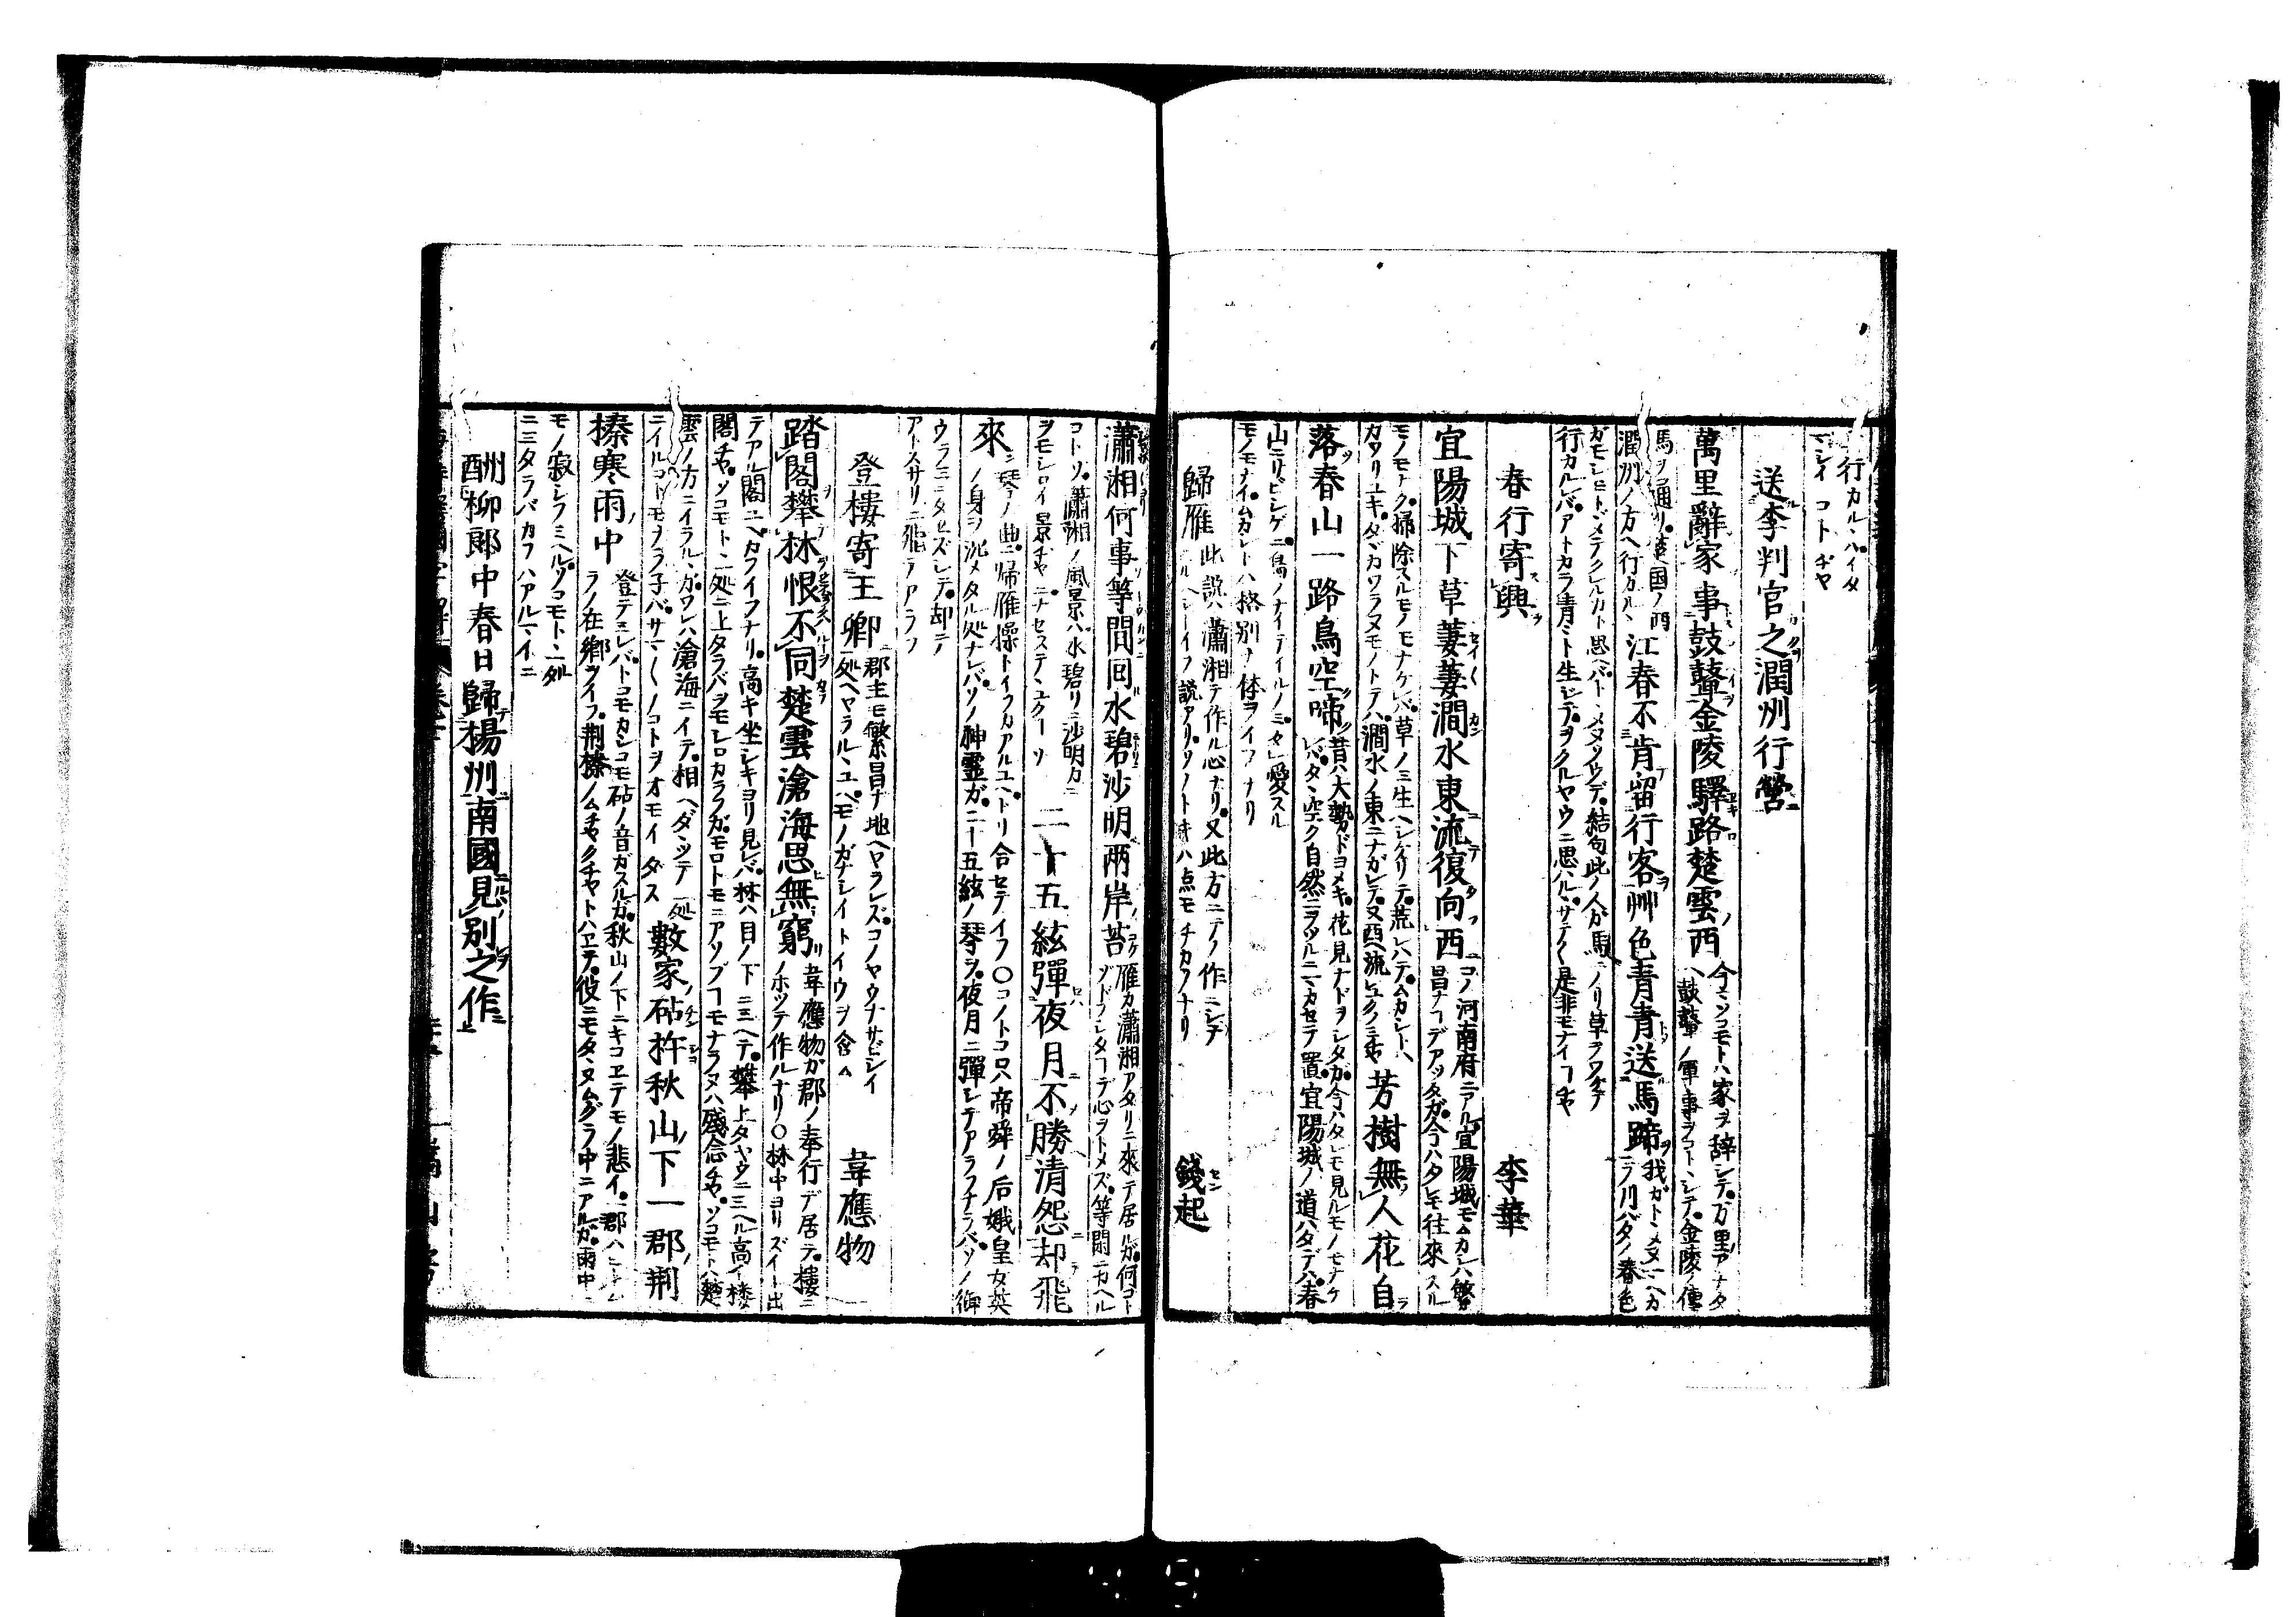 行カルヽハイタ
マシイコトヂヤ
送李判官之潤州行營
萬里辭家事鼓鼙金陵驛路楚雲西
今ソコモトハ家ヲ辞シテ万里アナタ
ハ鼓鼙ノ軍事ヲコトヽシテ金陵ノ傳
馬ヲ通リ楚国ノ西
潤州ノ方ヘ行カルヽ
江春不肯留行客艸色青青送馬蹄
行カルレバアトカラ青々ト生シテヲクルヤウニ思ハルヽサテ〱是非モナイコヂヤ
春行寄興
李華
宜陽城下草萋萋澗水東流復向西
コノ河南府ニアル宜陽城モムカシハ繁
昌ナコデアッタガ今ハタレモ往來スル
モノモナク掃除スルモノモナケレバ草ノミ生ヘシゲリテ荒レハテムカシトハ
カワリユキタヾカワラヌモノトテハ澗水ノ東ニナガレテ又西ヘ流レユクノミヂヤ
芳樹無人花自
落春山一路鳥空啼
昔ハ大勢ドヨメキ花見ナドヲシタガ今ハタレモ見ルモノモナケ
レバタヾ空ク自然ニヲツルニマカセテ置宜陽城ノ道ハタデハ春
山ニサビシゲニ鳥ノナイテイルノミタレ愛スル
モノモナイムカシトハ格別ナ体ヲイフナリ
歸雁
此説ハ瀟湘テ作ル心ナリ又此方ニテノ作ニシテ
錢起
瀟湘何事等閒回水碧沙明兩岸苔
雁カ瀟湘アタリニ來テ居ルガ何コト
ゾドフシタコデ心ヲトメズ等閒ニカヘル
コトソ瀟湘ノ風景ハ水碧リニ沙明カニ
ヲモシロイ景ヂヤニナセステヽユクーソ
二十五絃彈夜月不勝清怨却飛
來
琴ノ曲ニ歸雁操トイフカアルユヘトリ合セテイフ〇コノトコ只帝舜ノ后娥皇女英
ノ身ヲ沉メタル処ナレバソノ神霊ガ二十五絃ノ琴ヲ夜月ニ彈シテアラフナラバソノ御
ウラミニタヱズシテ却テ
アトスサリニ飛テアラフ
登樓寄王卿
郡主モ繁昌ナ地ヘヤラレズコノヤウナサビシイ
処ヘヤラルヽユヘモノガナシイトイウヲ含ム
韋應物
踏閣攀林恨不同楚雲滄海思無窮
韋應物カ郡ノ奉行デ居テ樓ニ
ノホッテ作ルナリ〇林中ヨリズイト出
テアル閣ニヘタヲイフナリ高キ坐シキヨリ見レバ林ハ目ノ下ニミヘテ攀上タヤウニミヘル高イ楼
閣チヤソコモト一処ニ上タラバヲモシロカラフガモロトモニアソブコモナラヌハ殘念チヤソコモトハ楚
雲ノ方ニイラルヽガワレハ滄海ニイテ相ヘダヽッテ一処
ニイルコトモナラ子バサマ〱ノコトヲオモイダス
數家砧杵秋山下一郡荆
榛寒雨中
登テミレバトコモカシコモ砧ノ音ガスルガ秋山ノ下ニキコヱテモノ悲イ
ラノ在郷ヲイフ荆榛ノムチヤクチヤトハヱテ彼ニモタヽヌムグラ中ニアルガ雨中
モノ寂シフミヘルソコモト一処
ニミタラバカフハアルマイニ
酬柳郎中春日歸揚州南國見別之作